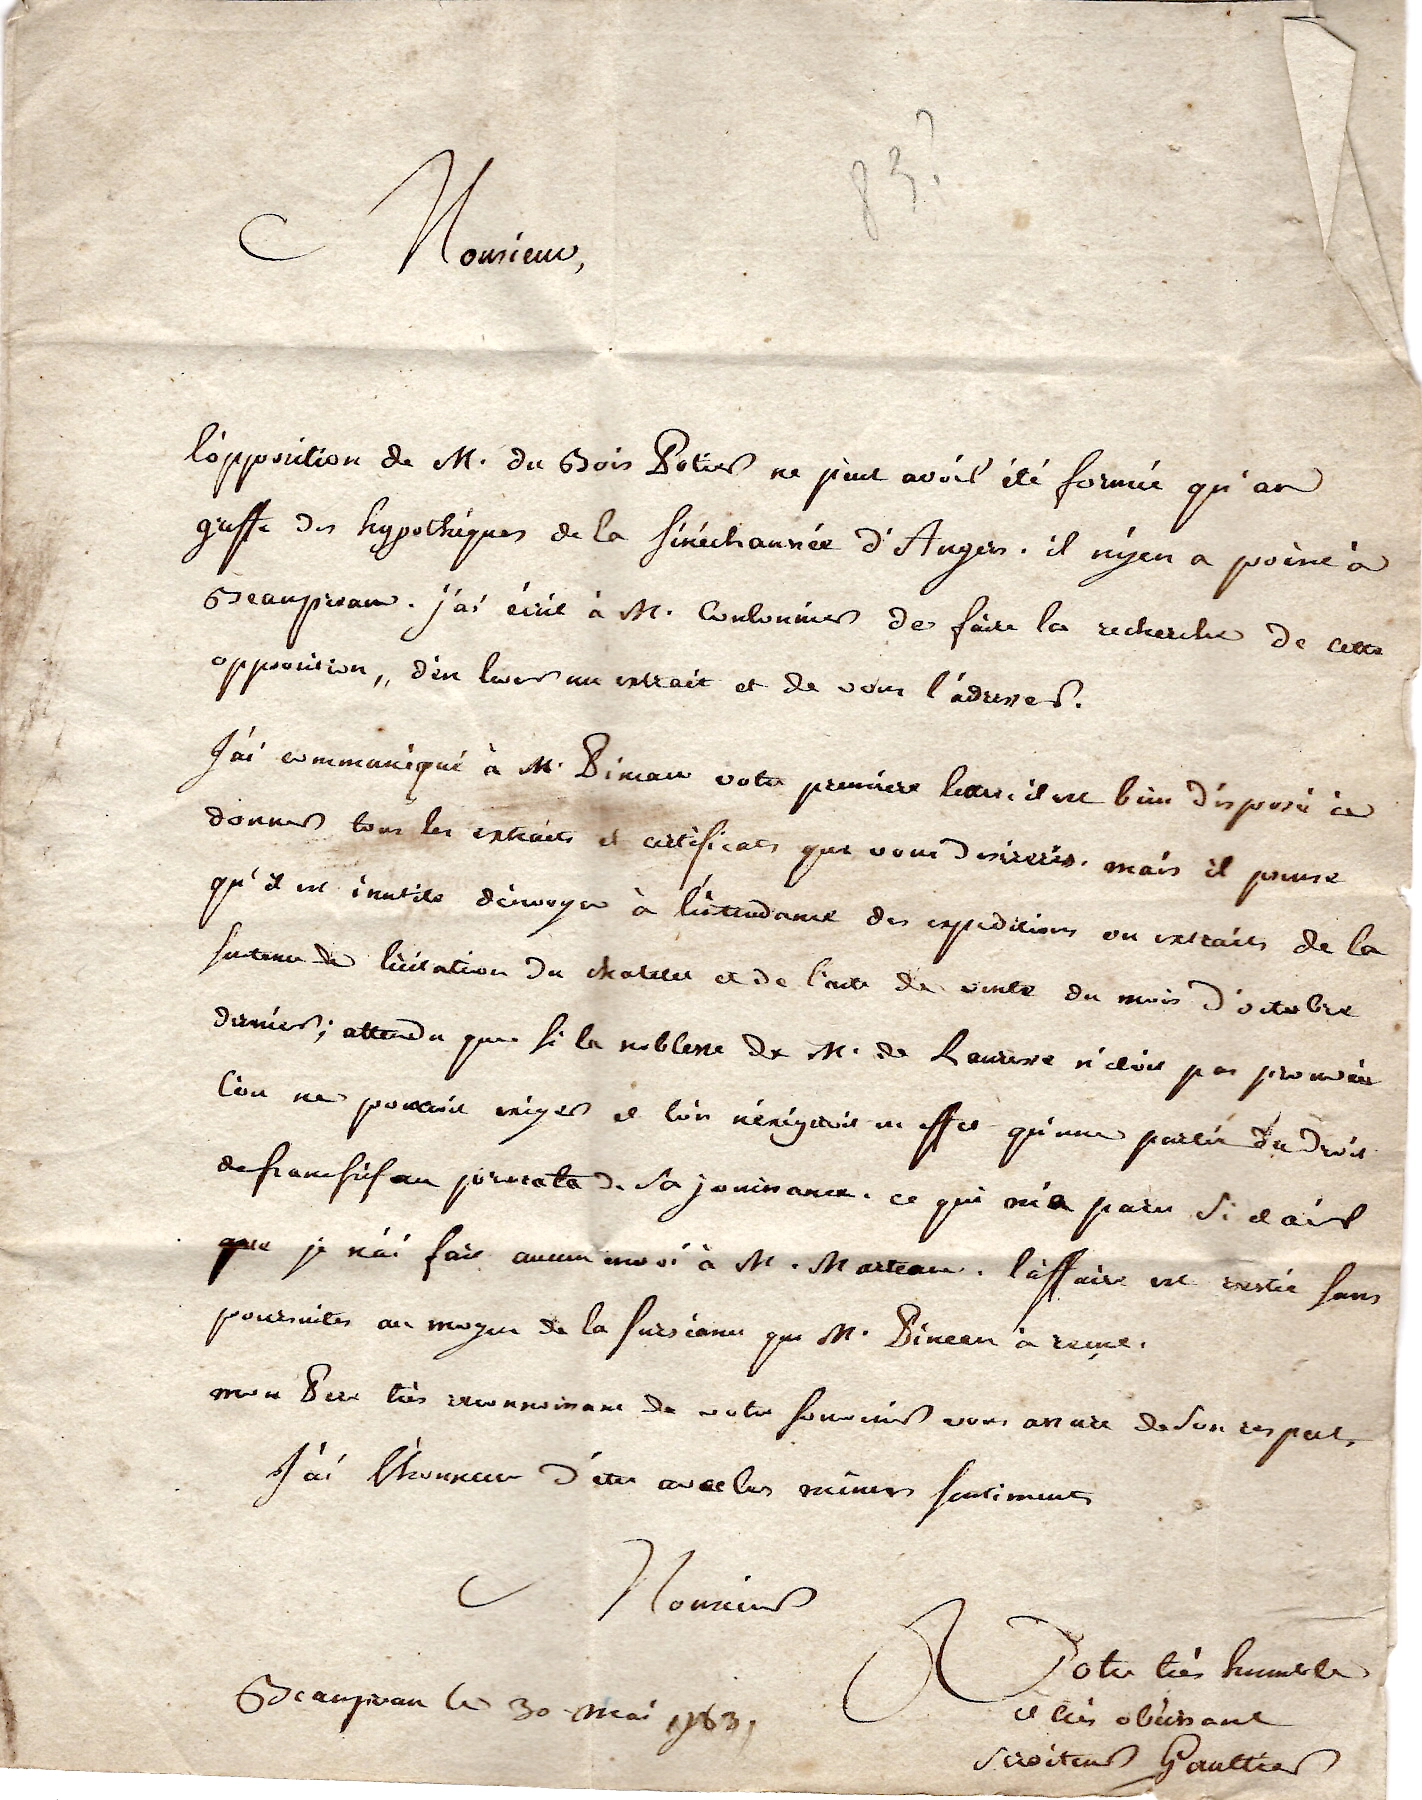 83?
Monsieur,
l'opposition de M. du Bois Potier ne peut avoir été formée qu'au
greffe des hypothéques de la sénéchaussée d'Angers. il n'y en a point à
Beaupreau. j'ai écrit à M. Coulonnier de faire la recherche de cette
opposition, d'en lever un extrait et de vous l'adresser.
J'ai communiqué à M. votre premiere lettre; il est bien disposé à
donner tous les extraits et certificats que vous desirerés. mais il pense
qu'il est inutile d'envoyer à l'intendance des expeditions ou extraits de la
sentence de licitation du chatelet et de l'acte de vente du mois d'octobre
dernier; attendu que si la noblesse de M. de n'etoit pas prouvée
l'on ne pouroit exiger et l'on n'exigeroit en effet qu'une partie du droit
de franc fief au prorata de sa jouissance. ce qui m'a paru si clair
que je n'ai fait aucun envoi à M. Marteau. l'affaire est restée sans
poursuites au moyen de la surséance que M. à reçue.
mon Pere très reconnoissant de votre souvenir vous assure de son respect,
J'ai l'honneur d'etre avec les mêmes sentiments
Monsieur
Votre très humble
et très obéissant
serviteur Gaultier
Beaupreau le 30 mai 1783,